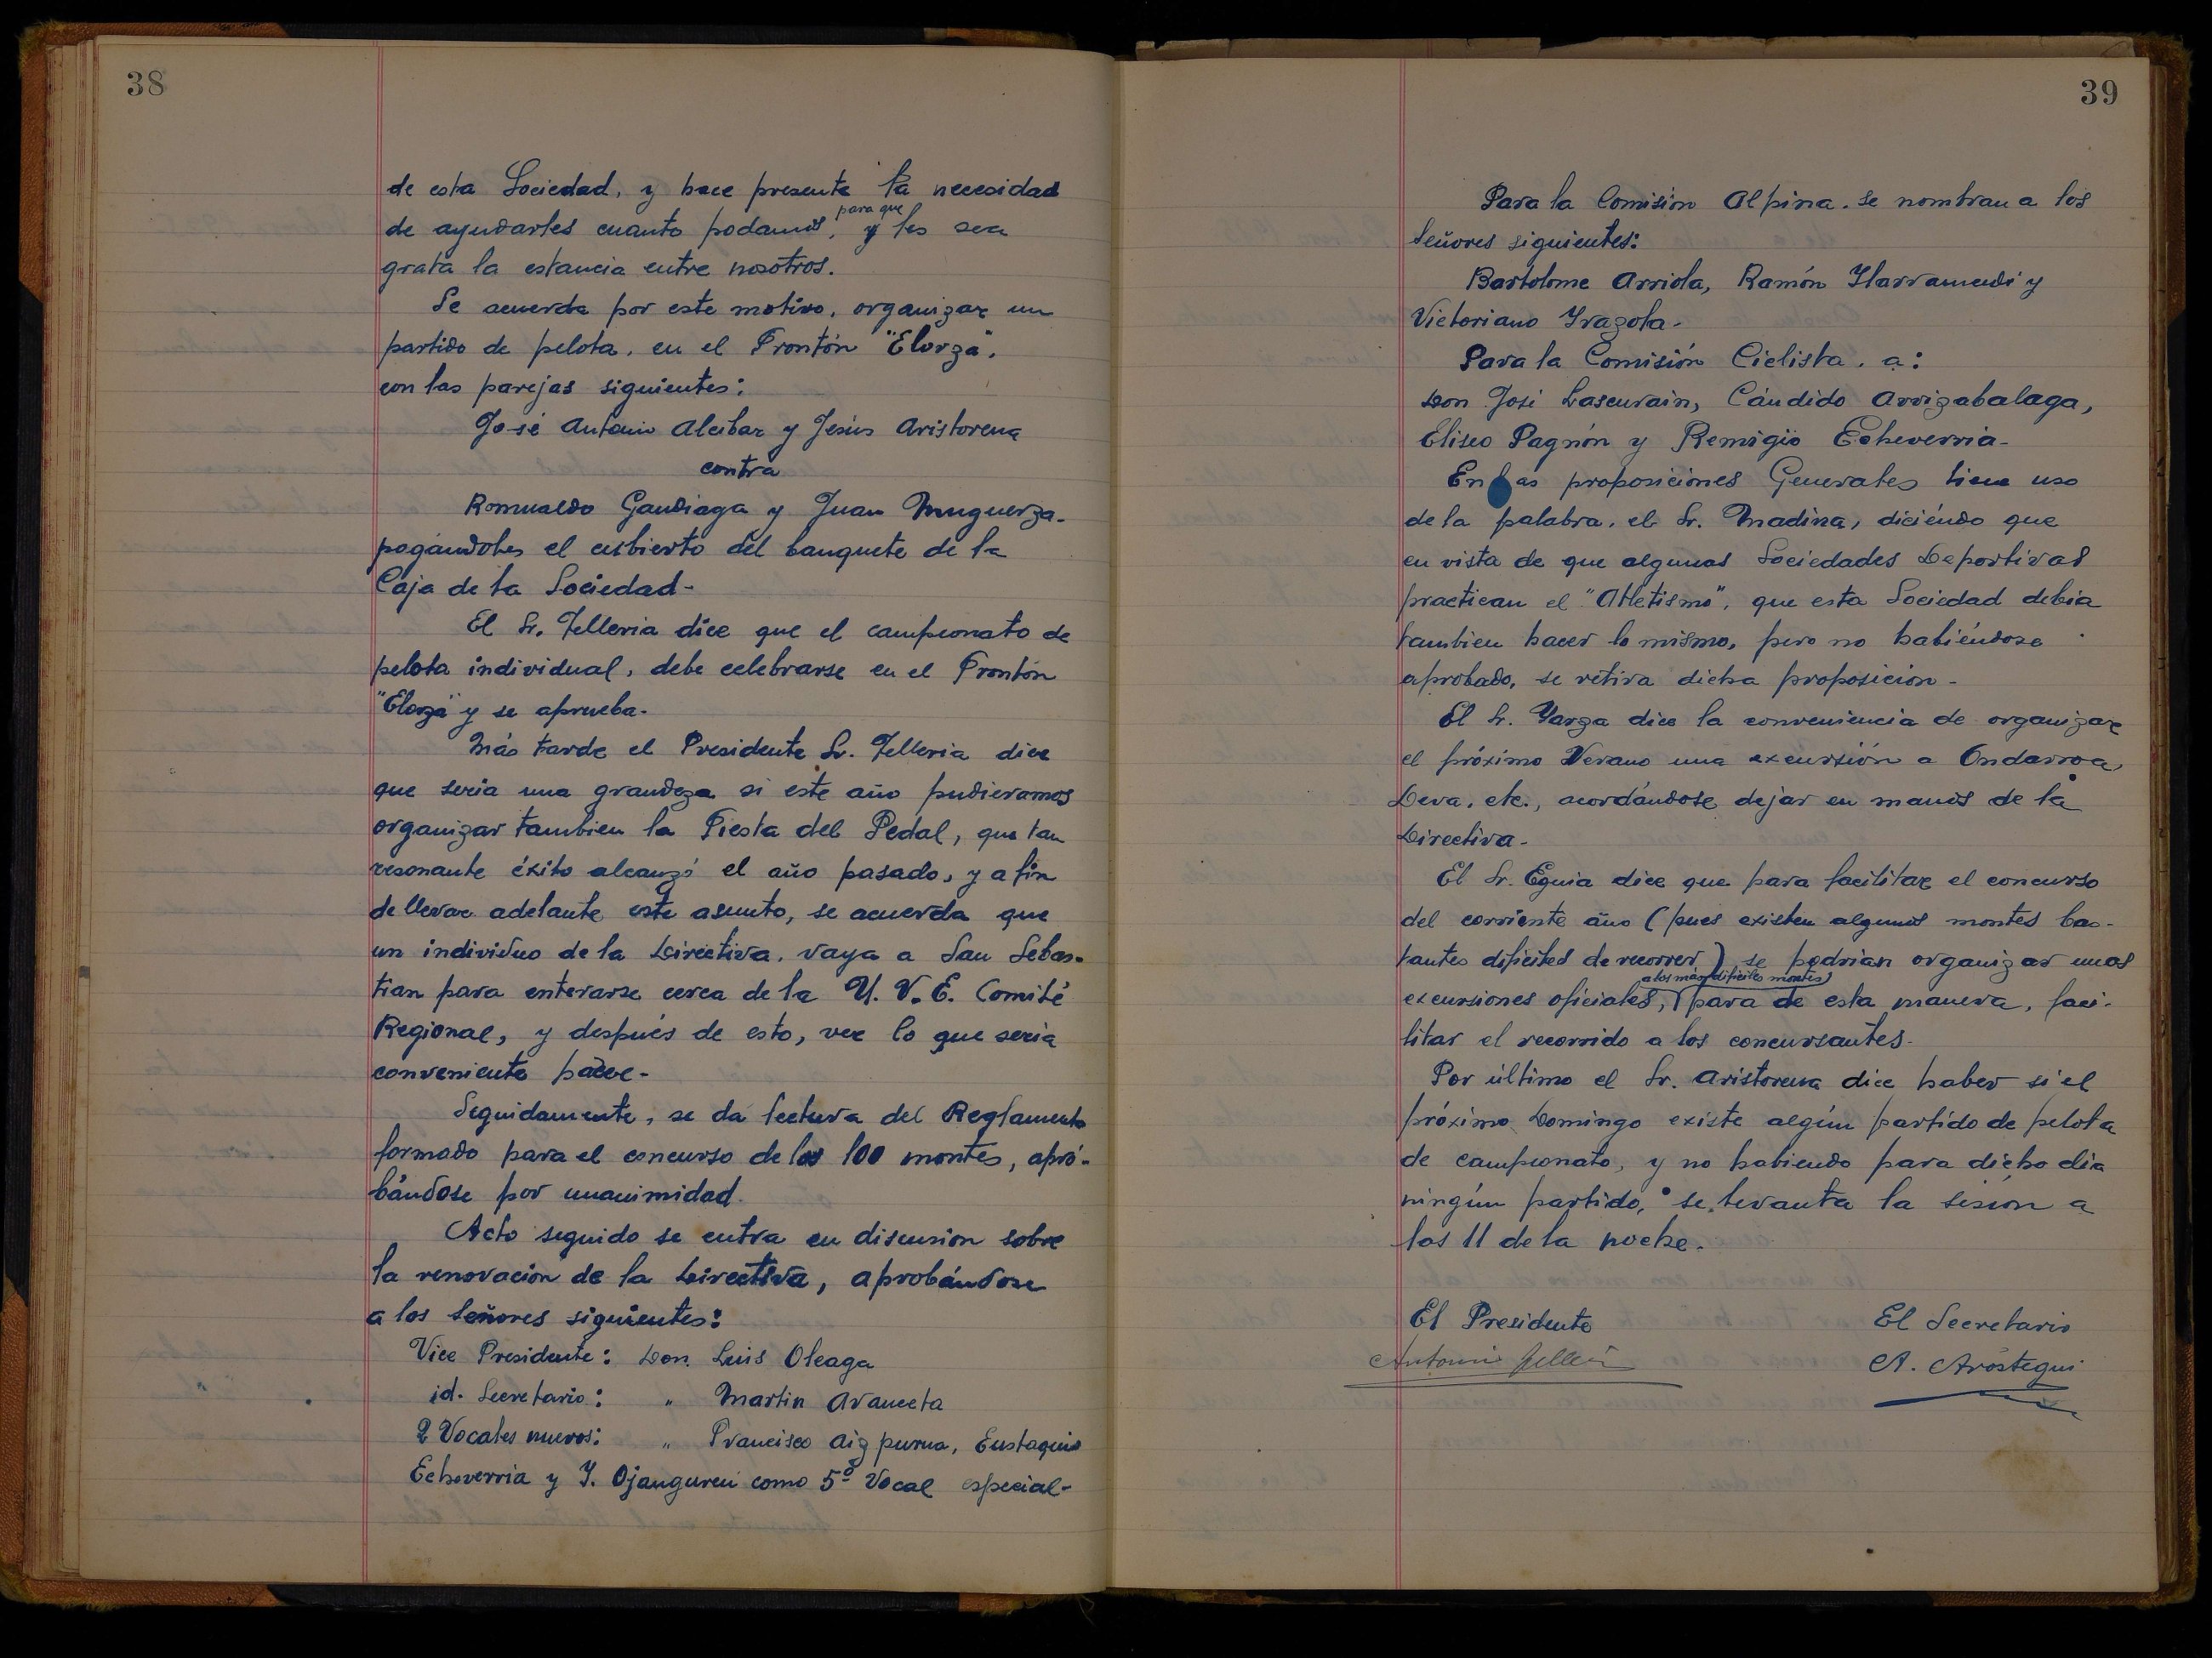 38
de esta Sociedad, y hace presente la necesidad
para que
de ayudarles cuanto podamos, y les sea
grata la estancia entre nosotros.
Se acuerda por este motivo, organizar un
partido de pelota, en el Frontón "Elorza",
con las parejas siguientes:
José Antonio Alcibar y Jesús Aristorena
contra
Romualdo Gandiaga y Juan Muguerza-
pagándoles el cubierto del banquete de la
Caja de la Sociedad-
El Sr. Telleria dice que el campeonato de
pelota individual, debe celebrarse en el Frontón
"Elorza" y se aprueba-
Más tarde el Presidente Sr. Telleria dice
que seria una grandeza si este año pudieramos
organizar tambien la Fiesta del Pedal, que tan
resonante éxito alcanzó el año pasado, y a fin
de llevar adelante este asunto, se acuerda que
un individuo de la Directiva, vaya a San Sebas-
tian para enterarse cerca de la U. V. E. Comité
Regional, y después de esto, ver lo que seria
conveniente hacer-
Seguidamente, se da lectura del Reglamento
formado para el concurso de los 100 montes, apro-
bándose por unanimidad.
Acto seguido se entra en discusion sobre
la renovación de la Directiva, aprobándose
a los Señores siguientes:
Vice Presidente: Don Luis Oleaga
id. Secretario: " Martin Aranceta
2 Vocales nuevos: " Francisco Aizpurua, Eustaquio
Echeverria y J. Ojanguren como 5º Vocal especial-
39
Para la Comisión Alpina, se nombran a los
Señores siguientes:
Bartolome Arriola, Ramón Ilarramendi y
Victoriano Irazola-
Para la Comisión Ciclista, a:
Don José Lascurain, Cándido Arrizabalaga,
Eliseo Pagnón y Remigio Echeverria-
En las proposiciones Generales tiene uso
de la palabra, el Sr. Madina, diciéndo que
en vista de que algunas Sociedades Deportivas
practican el "Atletismo", que esta Sociedad debia
tambien hacer lo mismo, pero no habiéndose
aprobado, se retira dicha proposición-
El Sr. Yarza dice la conveniencia de organizar
el próximo Verano una excursión a Ondarroa,
Deva, etc., acordándose dejar en manos de la
Directiva-
El Sr. Eguia dice que para facilitar el concurso
del corriente año (pues existen algunos montes bas-
tantes dificiles de recorrer) se podrian organizar unas
a los más dificiles montes
excursiones oficiales, para de esta manera, faci-
litar el recorrido a los concursantes-
Por último el Sr. Aristorena dice haber si el
próximo Domingo existe algún partido de pelota
de campeonato, y no habiendo para dicho dia
ningún partido, se levanta la sesión a
las 11 de la noche.
El Presidente El Secretario
Antonio Telleria A. Aróstegui